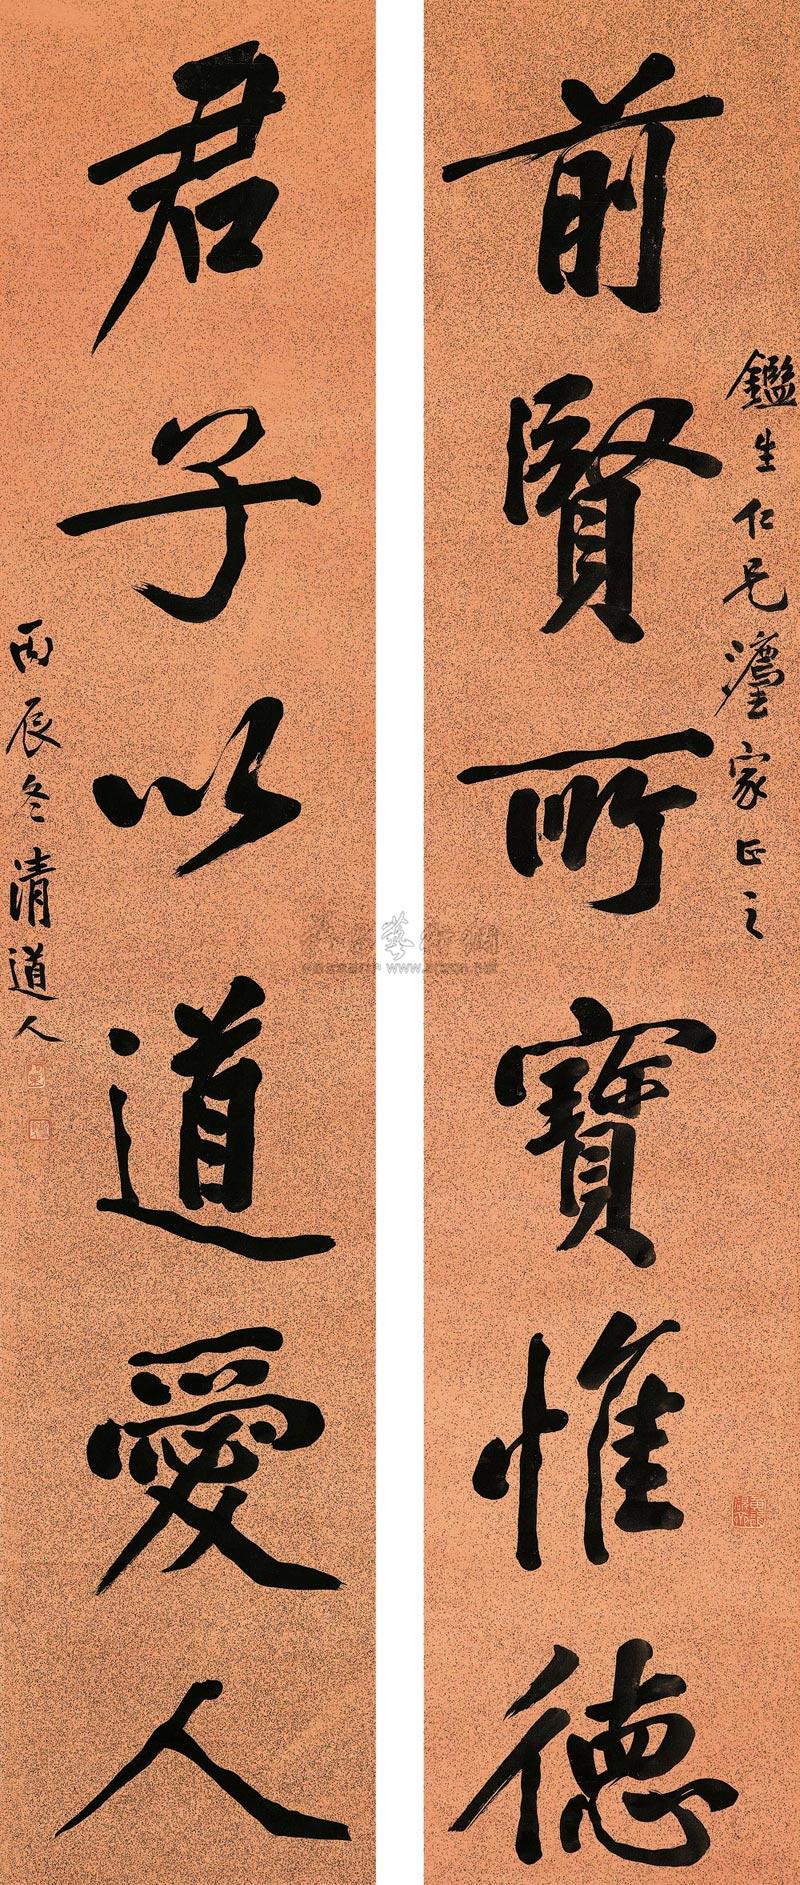 鑑生仁兄灋家正之
前賢所寶惟德
君子以道愛人
丙辰冬清道人